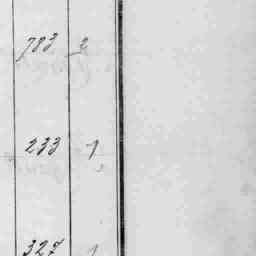 783 2
233 1
327 1